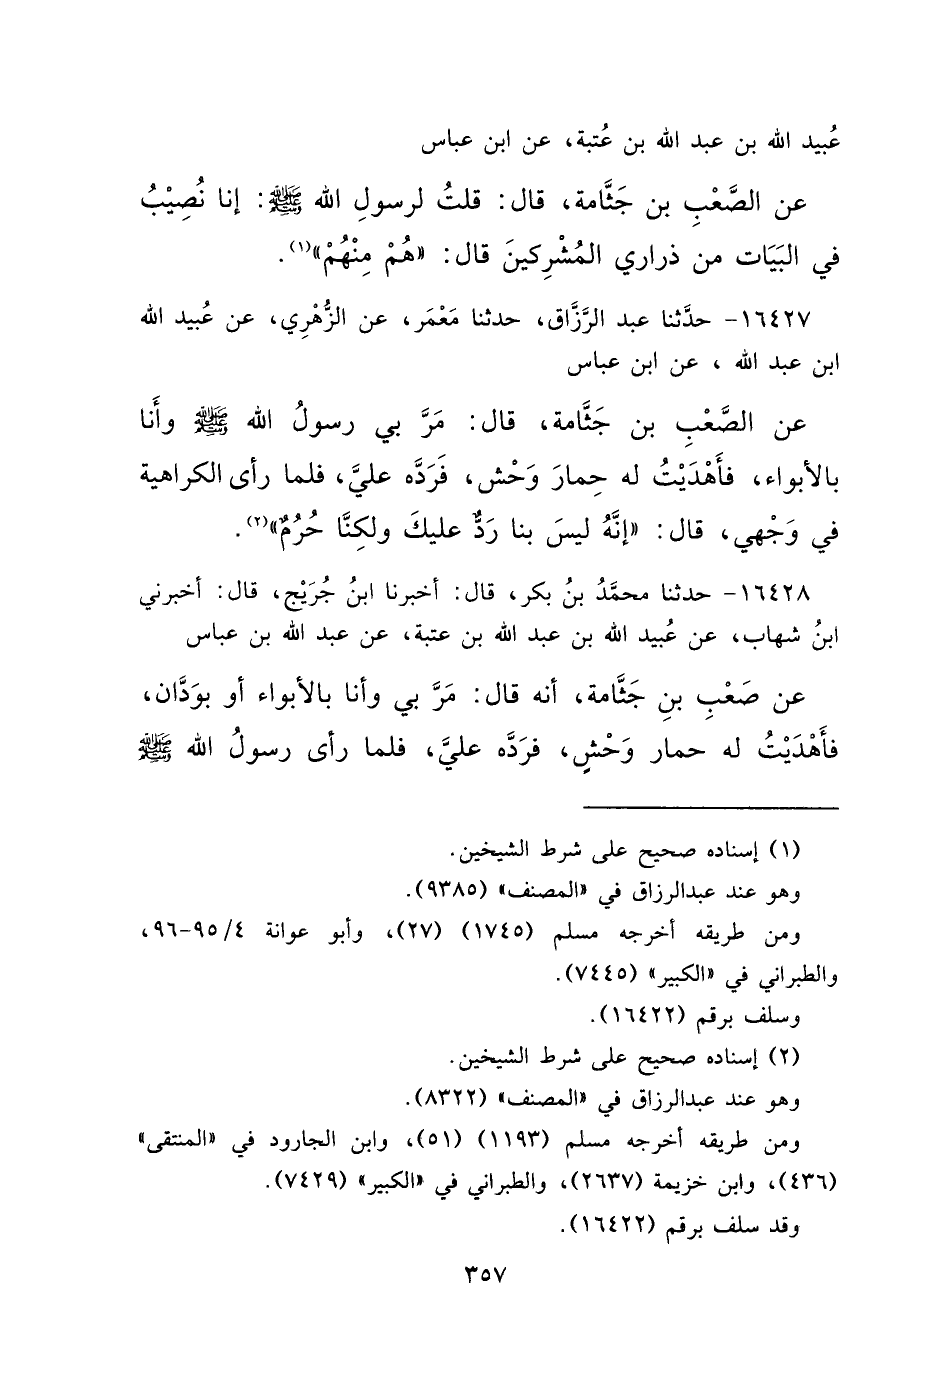 عُبيد الله بن عبد الله بن عُتبة، عن ابن عباس
عن الصَّعْبِ بن جَثَّامة، قال: قلتُ لرسولِ الله ﷺ: إنا نُصِيْبُ
في البَيَات من ذراري المُشْرِكينَ قال: «هُمْ مِنْهُمْ»(١).
١٦٤٢٧- حدَّثنا عبد الرَّزَّاق، حدثنا مَعْمَر، عن الزُّهْرِي، عن عُبيد الله
ابن عبد الله ، عن ابن عباس
عن الصَّعْبِ بن جَثَّامة، قال: مَرَّ بي رسولُ الله ﷺ وأَنا
بالأبواء، فأَهْدَيْتُ له حِمارَ وَحْش، فَرَدَّه عليَّ، فلما رأى الكراهية
في وَجْهي، قال: «إنَّهُ ليسَ بنا رَدٌّ عليكَ ولكِنَّا حُرُمٌ»(٢).
١٦٤٢٨- حدثنا محمَّدُ بنُ بكر، قال: أخبرنا ابنُ جُرَيْج، قال: أخبرني
ابنُ شهاب، عن عُبيد الله بن عبد الله بن عتبة، عن عبد الله بن عباس
عن صَعْبِ بنِ جَثَّامة، أنه قال: مَرَّ بي وأنا بالأبواء أو بوَدَّان،
فأَهْدَيْتُ له حمار وَحْشٍ، فرَدَّه عليَّ، فلما رأى رسولُ الله ﷺ
(١) إسناده صحيح على شرط الشيخين.
وهو عند عبدالرزاق في «المصنف» (٩٣٨٥).
ومن طريقه أخرجه مسلم (١٧٤٥) (٢٧)، وأبو عوانة ٤/ ٩٥-٩٦،
والطبراني في «الكبير» (٧٤٤٥).
وسلف برقم (١٦٤٢٢).
(٢) إسناده صحيح على شرط الشيخين.
وهو عند عبدالرزاق في «المصنف» (٨٣٢٢).
ومن طريقه أخرجه مسلم (١١٩٣) (٥١)، وابن الجارود في «المنتقى»
(٤٣٦)، وابن خزيمة (٢٦٣٧)، والطبراني في «الكبير» (٧٤٢٩).
وقد سلف برقم (١٦٤٢٢).
٣٥٧